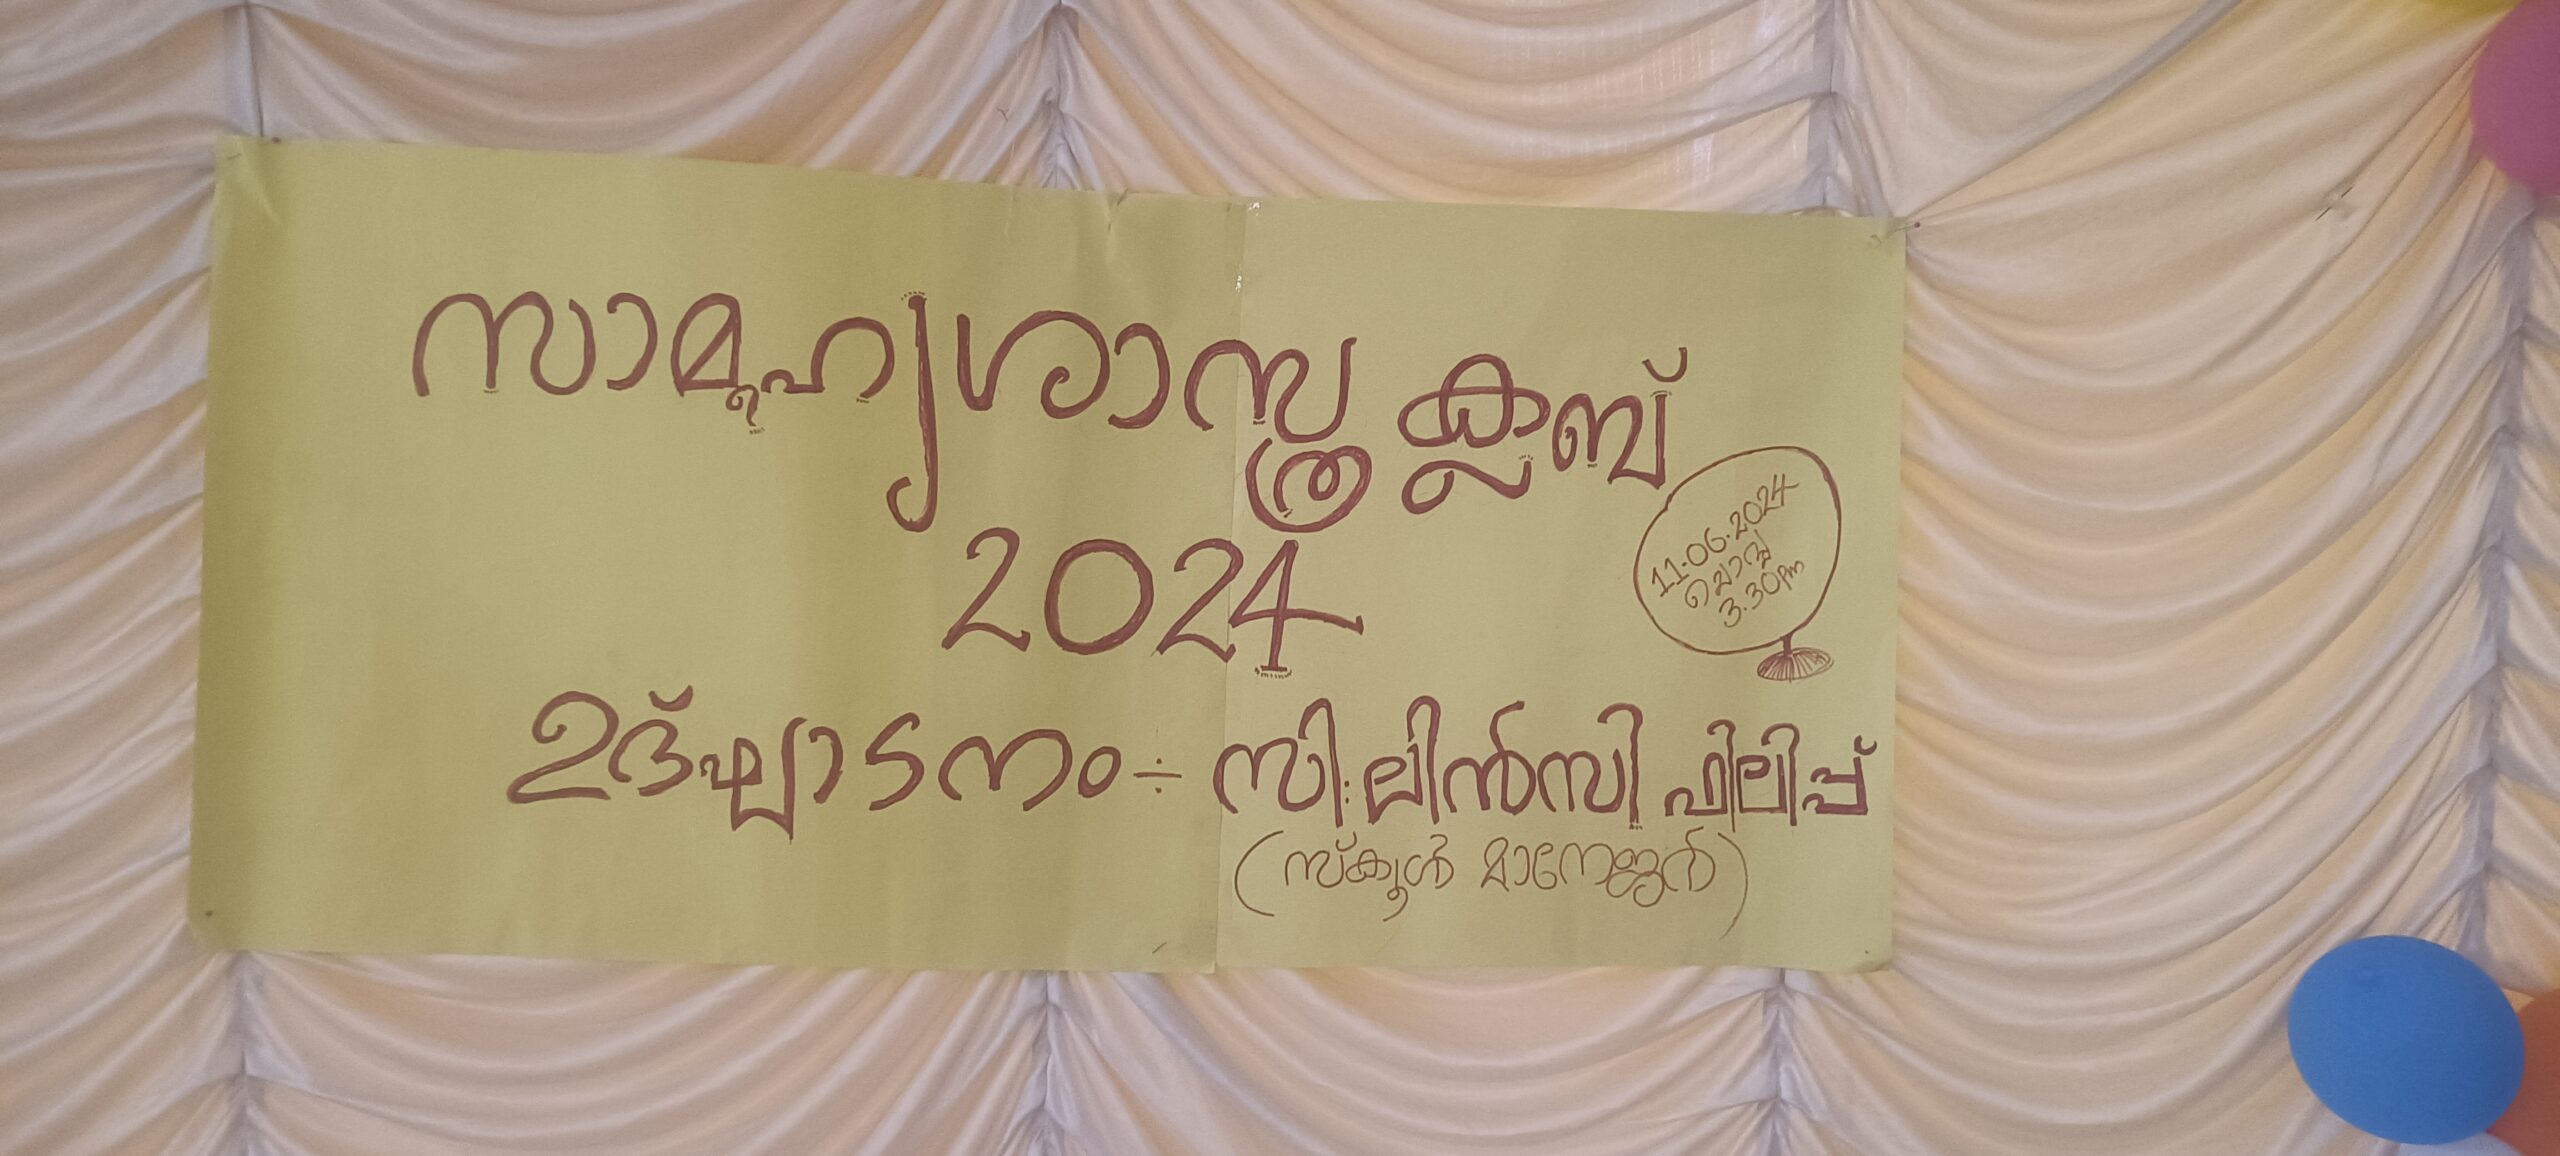 സാമൂഹ്യശാസ്ത്ര ക്ലബ്
2024
11.06.2024
ചൊവ്വ
3.30pm
ഉദ്ഘാടനം ÷ സി:ലിൻസി ഫിലിപ്പ്
(സ്കൂൾ മാനേജർ)